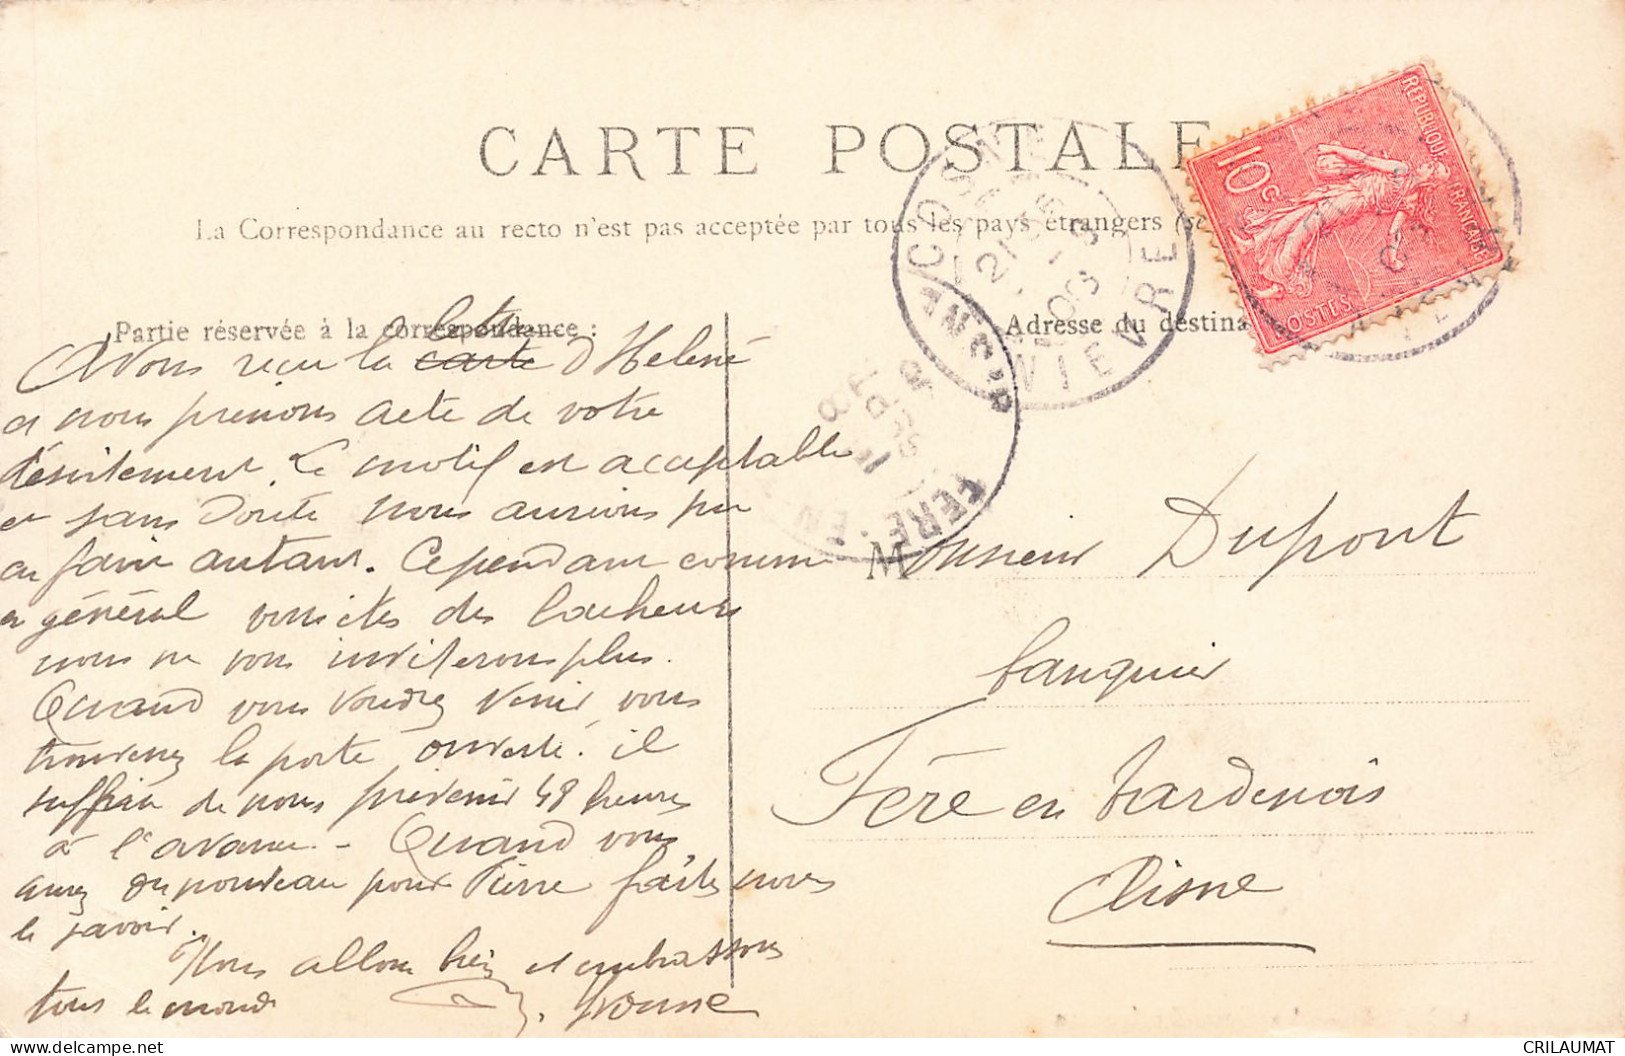 CARTE POSTALE
La Correspondance au recto n'est pas acceptée par tous les pays étrangers (se
Partie réservée à la correspondance :
Adresse du destina
RÉPUBLIQUE FRANÇAISE
10 c
POSTES
COSNE
NIÈVRE
FÈRE-EN-
lettre
Avons reçu la carte d'Helene
et nous prenons acte de votre
désistement. Le motif est acceptable
et sans doute nous aurions pu
en faire autant. Cependant comme
en général vous êtes des lacheurs
nous ne vous inviterons plus.
Quand vous voudrez venir vous
trouverez la porte ouverte. il
suffira de nous prévenir 48 heures
à l'avance - Quand vous
aurez du nouveau pour Pierre faites nous
le savoir.
Nous allons bien et embrassons
tous le monde
Yvonne
Monsieur Dupont
banquier
Fère en Tardenois
Aisne
CRILAUMAT